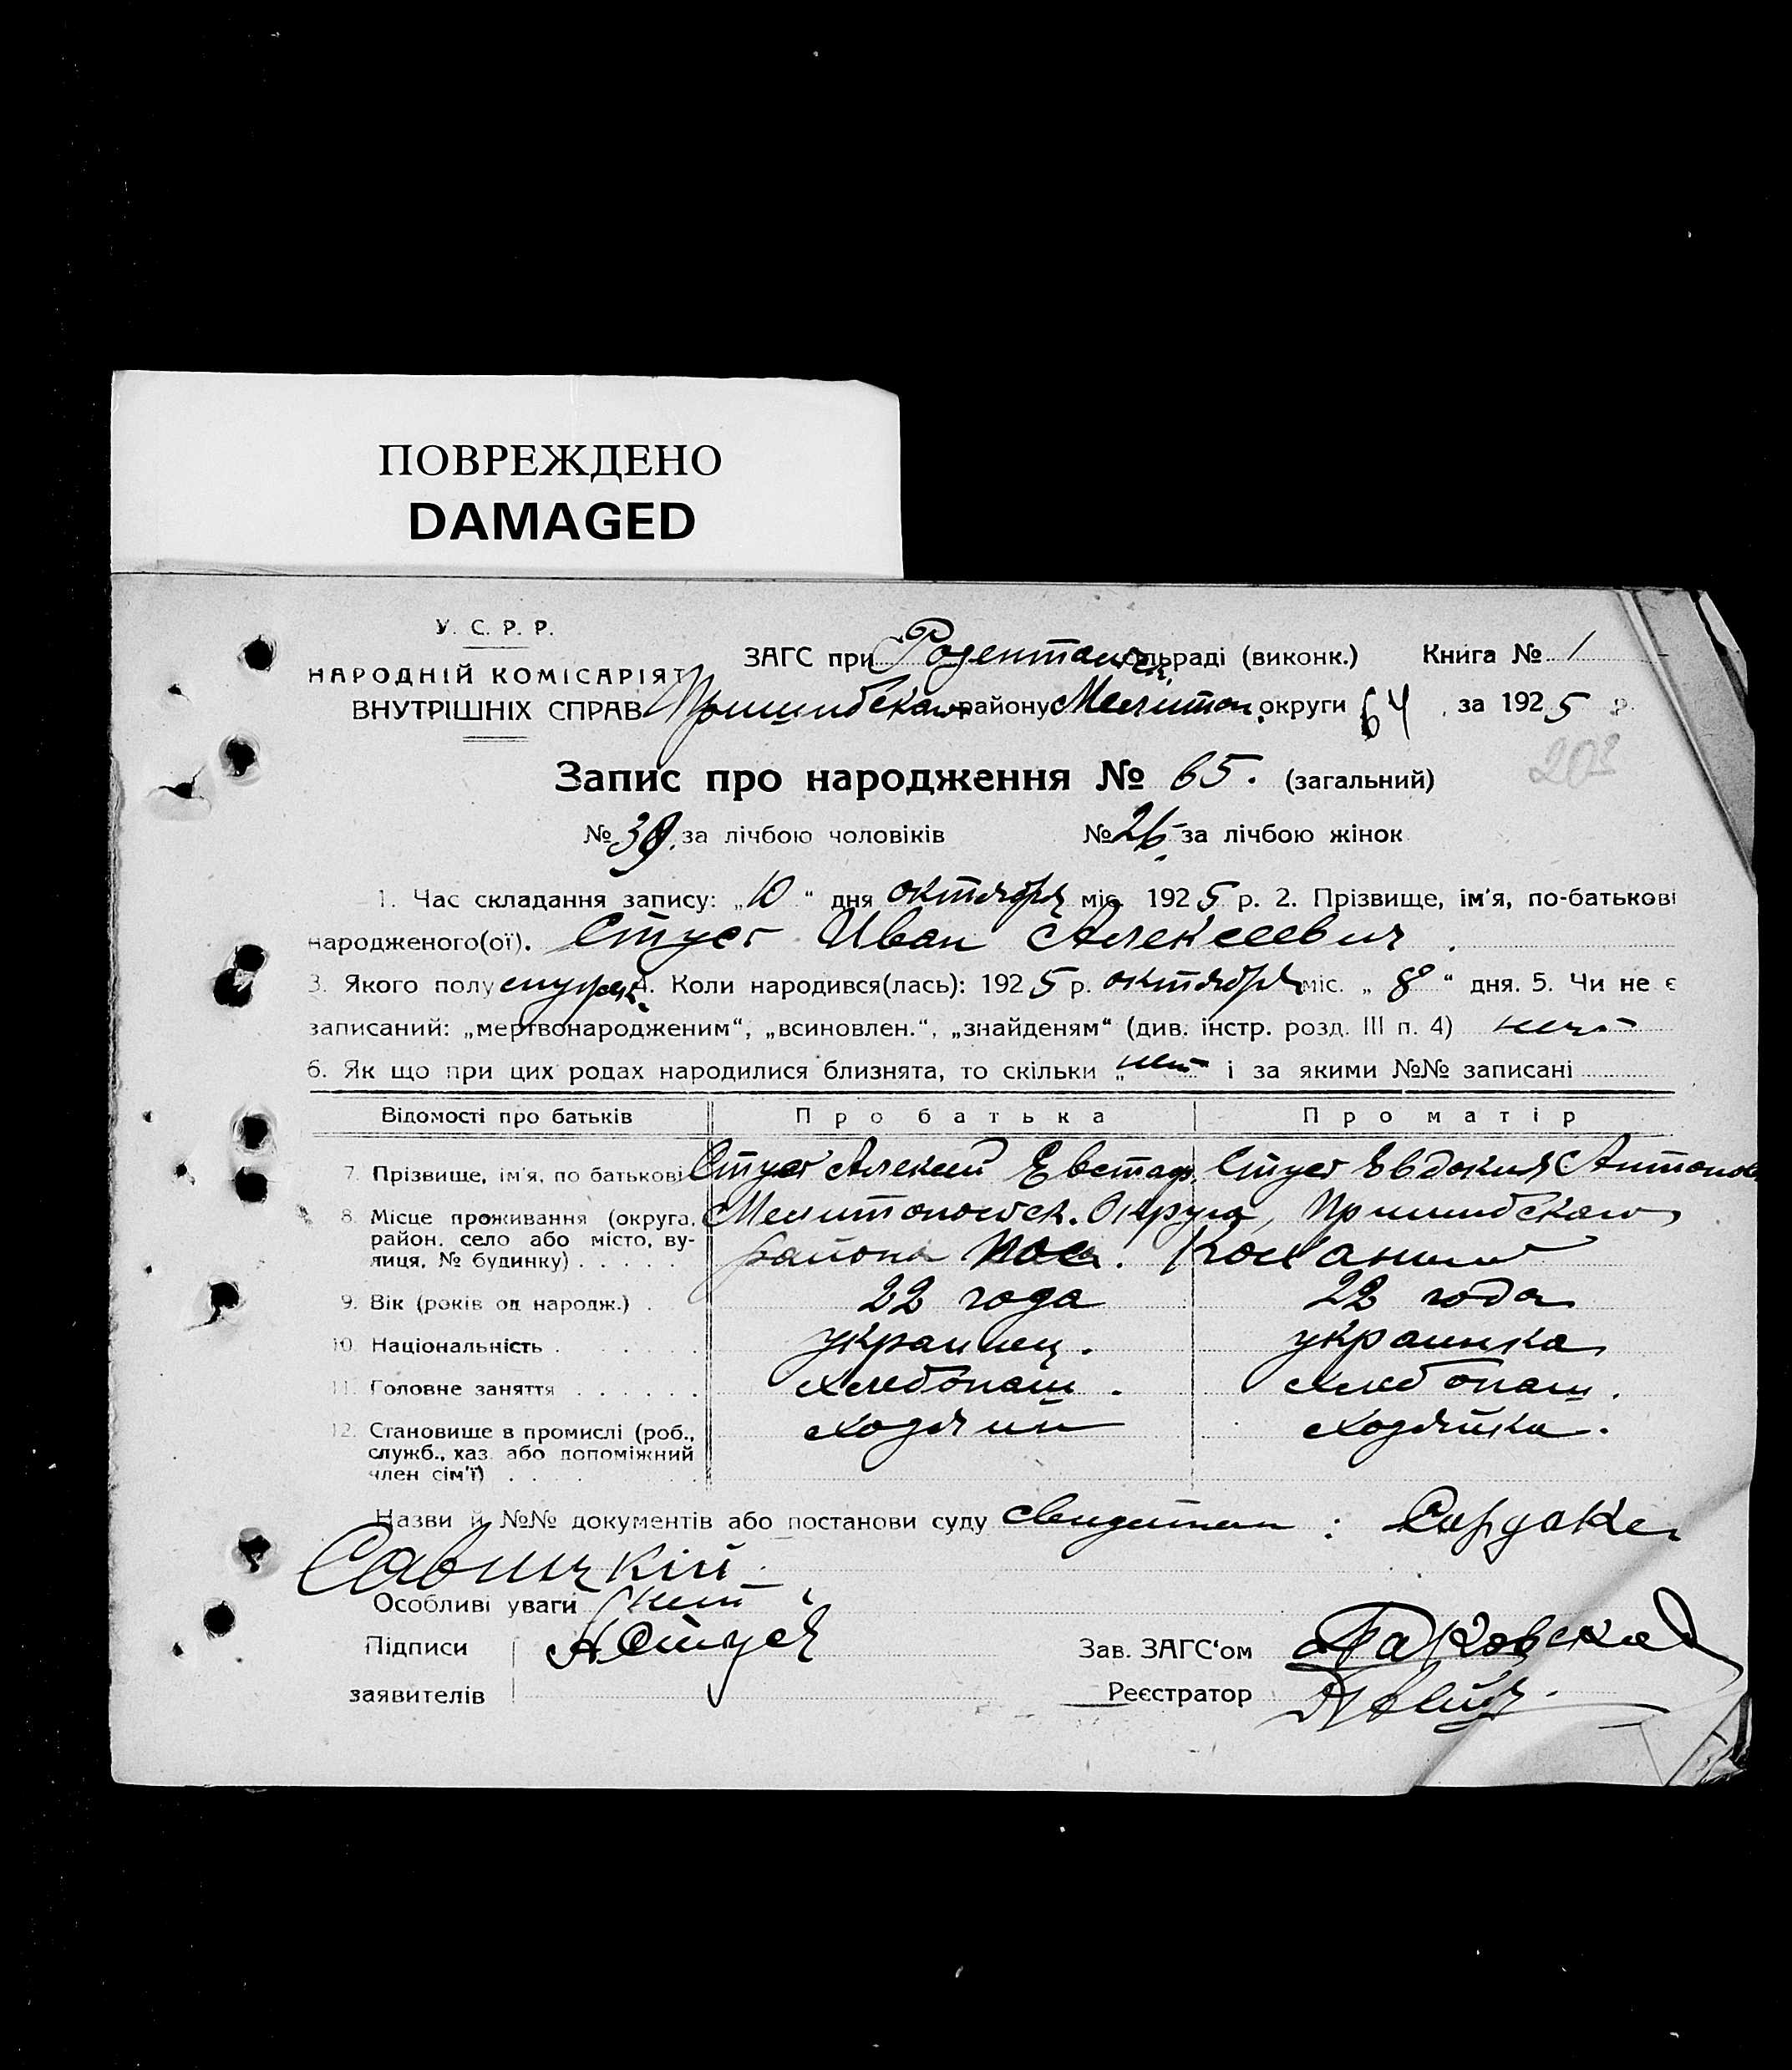 ПОВРЕЖДЕНО
DAMAGED
У. С. Р. Р.
НАРОДНІЙ КОМІСАРІЯТ
ВНУТРІШНІХ СПРАВ
ЗАГС при сільраді (виконк.) Книга № 1
Пришибскаго району Мелитоп. округи 64, за 1925 р.
203
Запис про народження № 65. (загальний)
№ 39. за лічбою чоловіків № 26 за лічбою жінок
1. Час складання запису: „10“ дня октября міс. 1925 р. 2. Прізвище, ім'я, по-батькові
народженого(ої). Стуст Иван Алексеевич.
3. Якого полу мужск. 4. Коли народився(лась): 1925 р. октября міс. „8“ дня. 5. Чи не є
записаний: „мертвонародженим“, „всиновлен.“, „знайденям“ (див. інстр. розд. III п. 4) нет
6. Як що при цих родах народилися близнята, то скільки „нет“ і за якими №№ записані
Відомості про батьків Про батька Про матір
7. Прізвище, ім'я, по батькові Стуст Алексей Евстаф. Стуст Евдокия Антонов
8. Місце проживання (округа, Мелитопольск. Округа, Пришибскаго
район, село або місто, ву- района пос.
лиця, № будинку) . . . . .
9. Вік (років од народж.) . 22 года 22 года
10. Національність . . . . . украинец. украинка
11. Головне заняття . . . . . . хлебопаш. хлебопаш.
12. Становище в промислі (роб., хозяин хозяйка.
служб., хаз. або допоміжний
член сім'ї) . . . .
Назви й №№ документів або постанови суду свидетели :
Савицкий
Особливі уваги нет
Підписи А Стуст Зав. ЗАГС'ом
заявителів Реєстратор